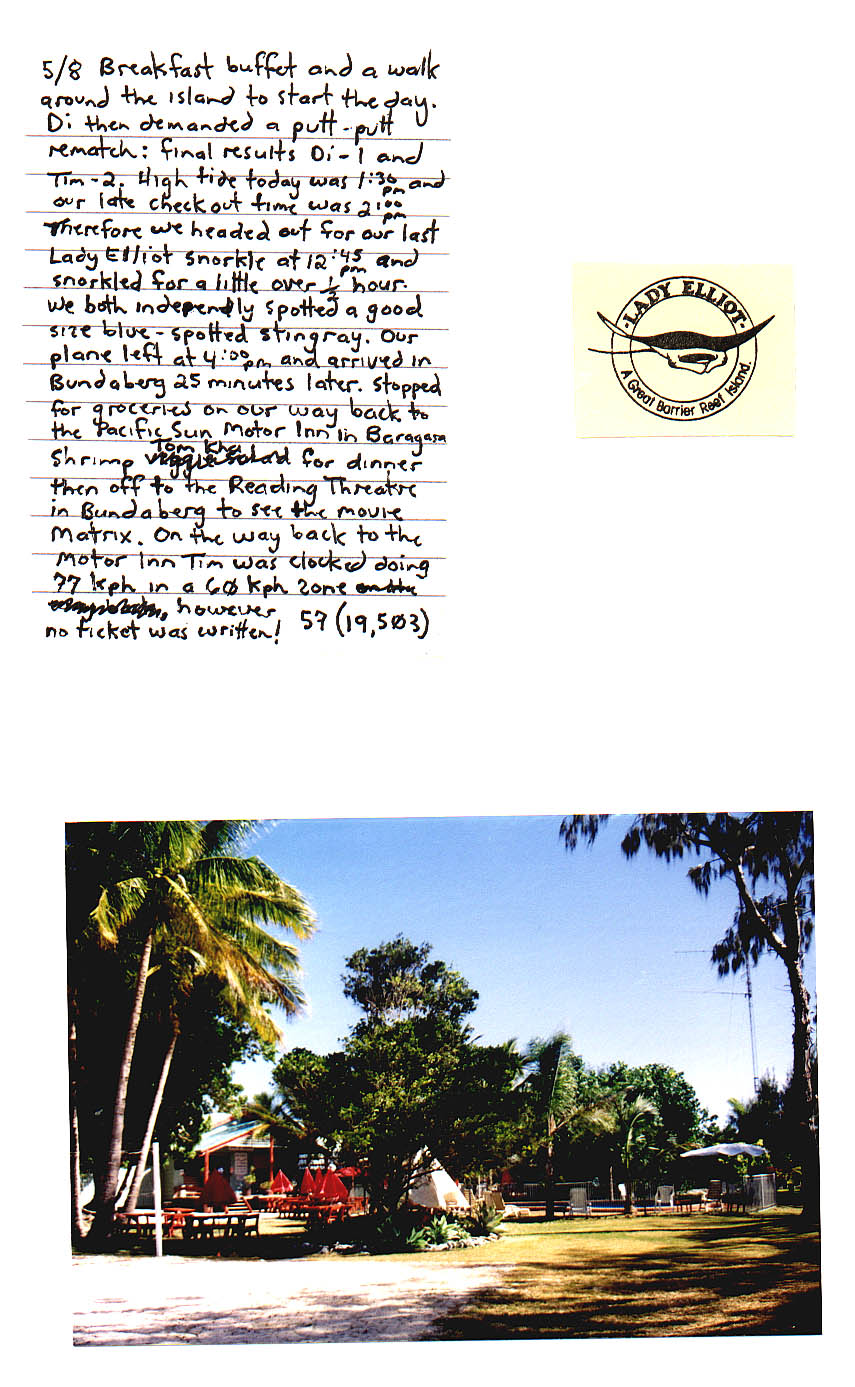 5/8 Breakfast buffet and a walk
around the island to start the day.
Di then demanded a putt-putt
rematch: final results Di-1 and
Tim-2. High tide today was 1:30 pm and
our late check out time was 2:00 pm
Therefore we headed out for our last
Lady Elliot snorkle at 12:45 pm and
snorkled for a little over 1/2 hour.
We both independly spotted a good
size blue-spotted stingray. Our
plane left at 4:00 pm and arrived in
Bundaberg 25 minutes later. Stopped
for groceries on our way back to
the Pacific Sun Motor Inn in Baragara
Shrimp Tom Kha for dinner
then off to the Reading Threatre
in Bundaberg to see the movie
Matrix. On the way back to the
Motor Inn Tim was clocked doing
77 kph in a 60 kph zone
, however
no ticket was written! 57 (19,503)
·LADY ELLIOT·
A Great Barrier Reef Island.